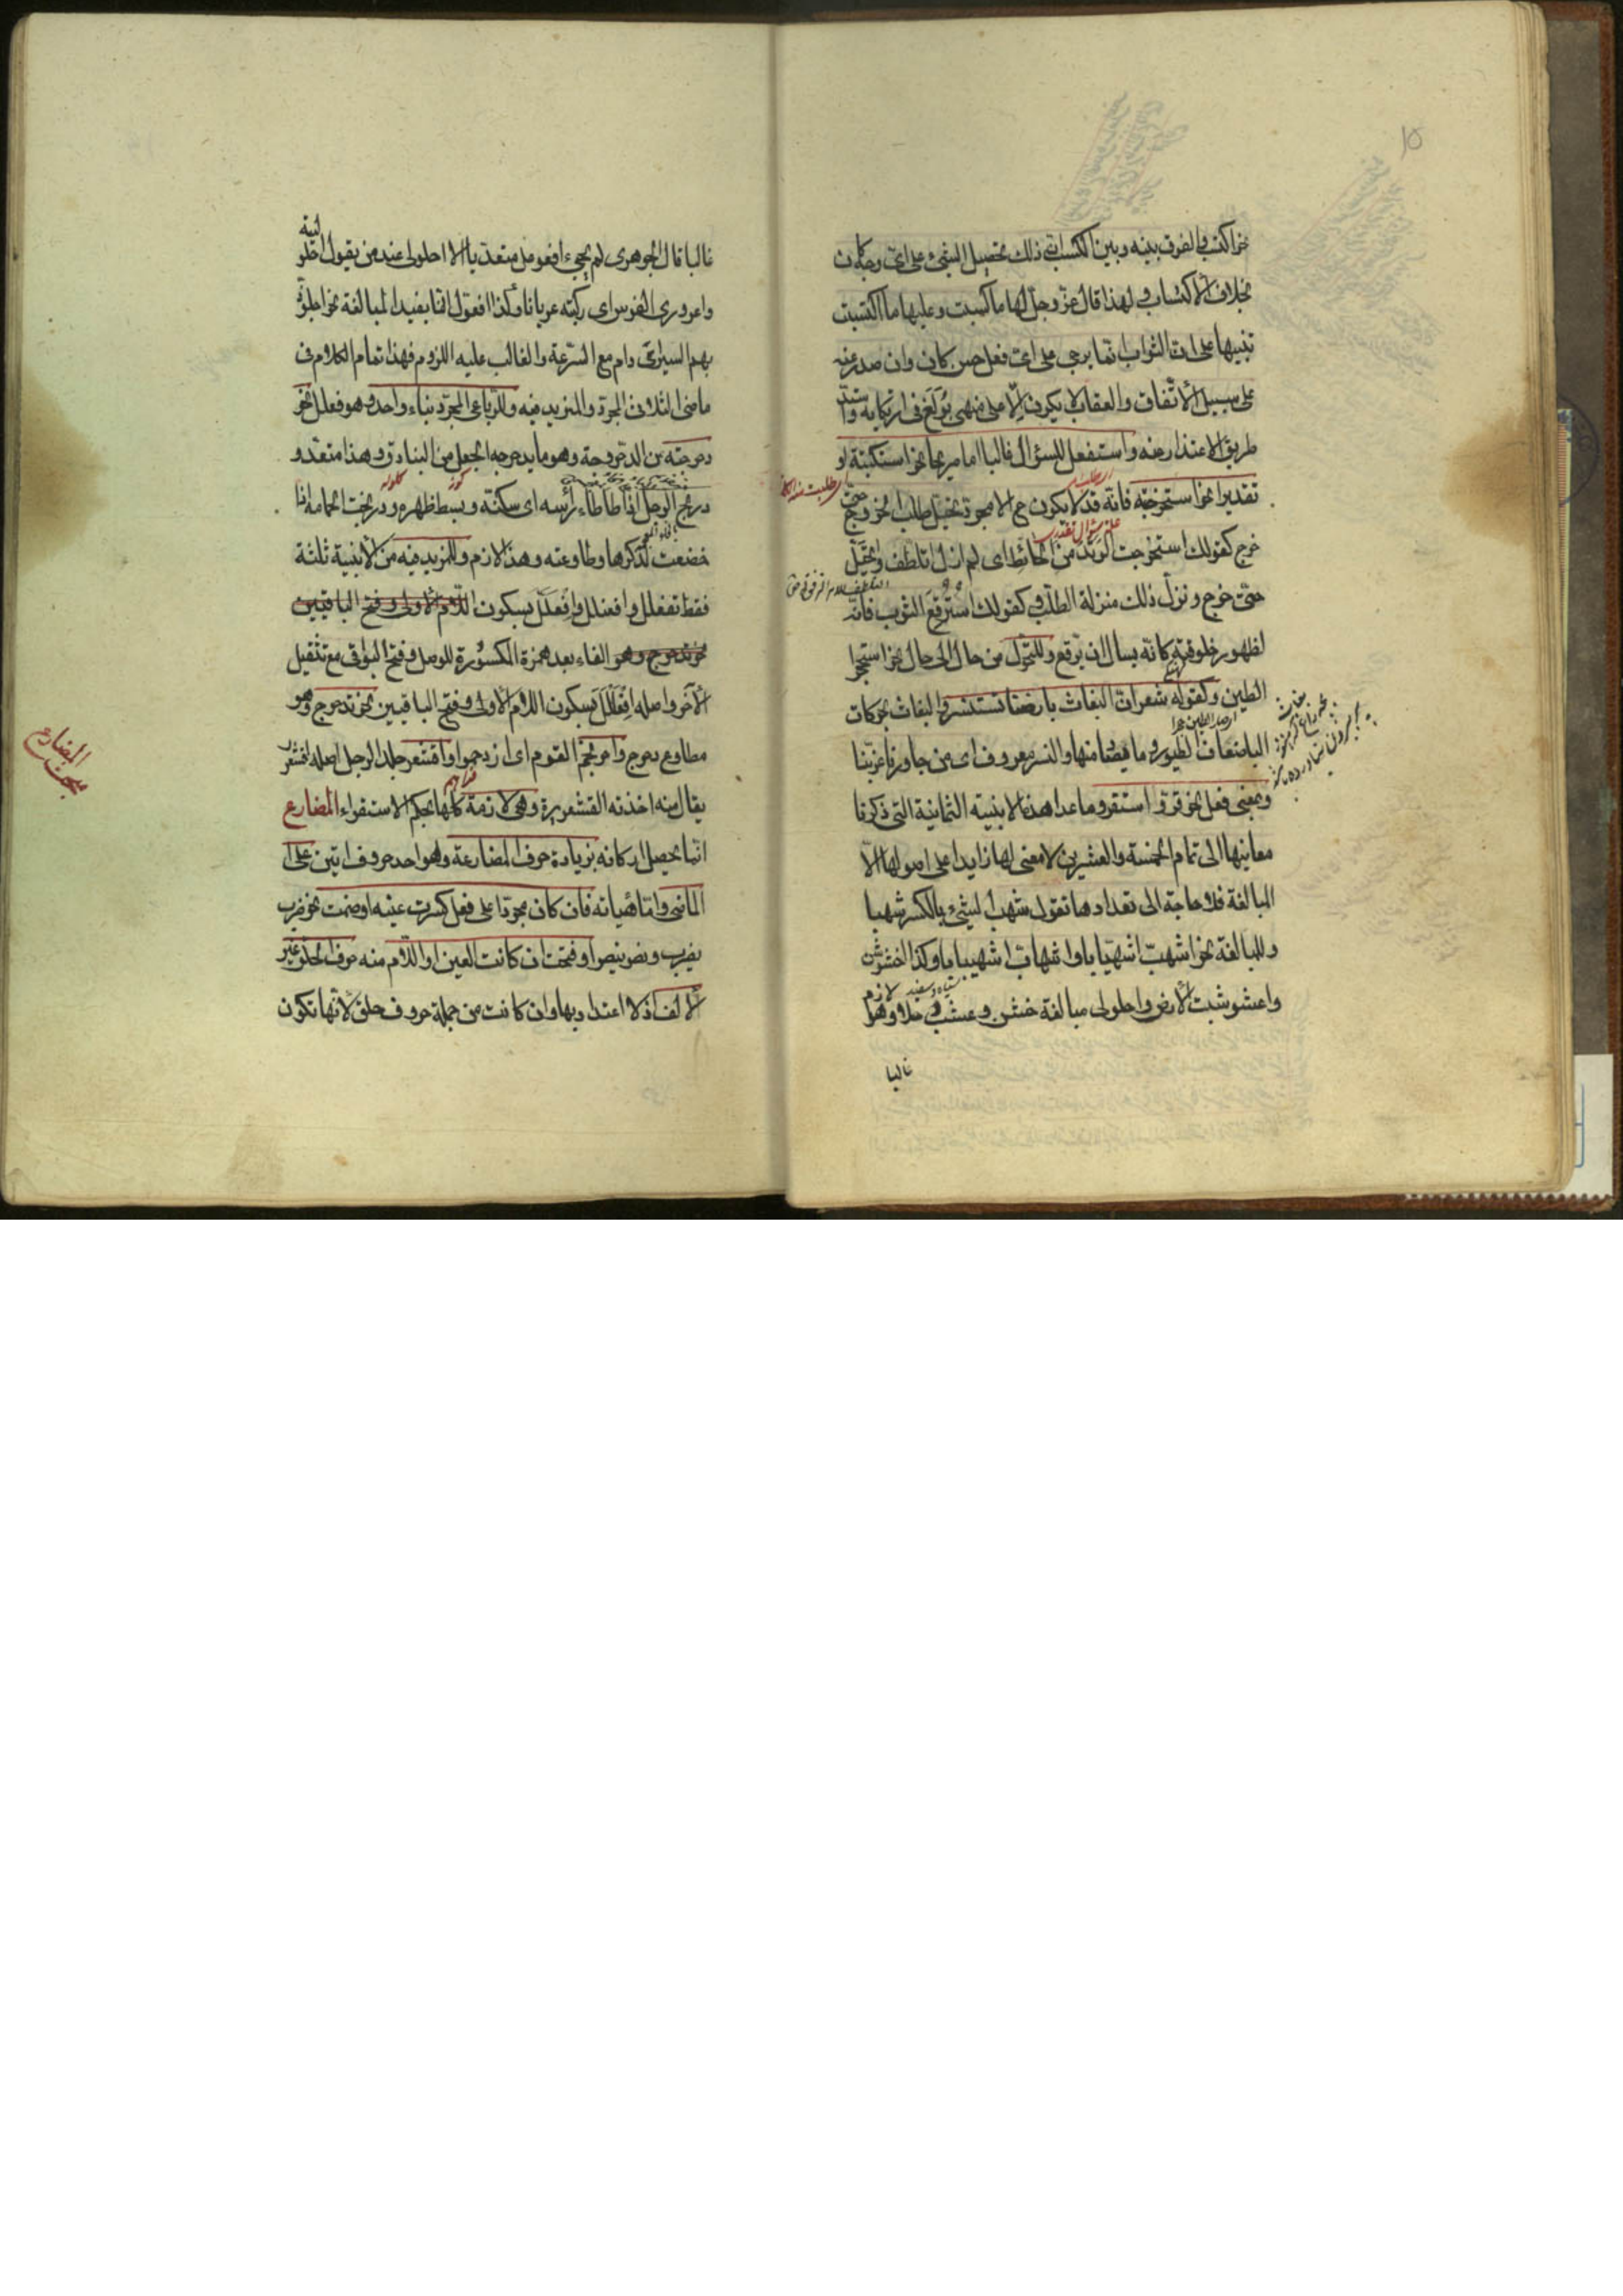 نحو اكتسب والفرق بينه وبين الكسب ان في ذلك تحصيل الشيء على اي وجه كان
بخلاف الاكتساب ولهذا قال عز وجل لها ما كسبت وعليها ما اكتسبت
تنبيها على ان الثواب انما يرجى على اي فعل حسن كان وان صدر عنه
على سبيل الاتفاق والعقاب لا يكون الا على منهي بولغ في ارتكابه
طريق الاعتذار عنه واستفعل للسؤال غالبا اما صريحا نحو استكتبته او
تقديرا نحو استخرجته فانه قد لا يكون الا مجرد تخيل طلب الخروج حتى
خرج كقولك استخرجت الوتد من الحائط اي لم ازل اتلطف واتخيل
حتى خرج ونزل ذلك منزلة الطلب وكقولك استرقع الثوب فانه
لظهور خلوقته كانه يسال ان يرقع وللتحول من حال الى حال نحو استحجر
الطين وكقوله شعر ان البغاث بارضنا تستنسر والبغاث بحركات
الباء ضعاف الطيور وما منها والنسر معروف اي من جاورنا عز بنا
وبمعنى فعل نحو قر واستقر وما عدا هذه الابنية الثمانية التي ذكرنا
معانيها الى تمام الخمسة والعشرين لا معنى لها زايدا على اصولها الا
المبالغة فلا حاجة الى تعدادها تقول شهب الشيء بالكسر شهبا
وللمبالغة نحو اشهب اشهبابا واشهاب اشهيبابا وكذا اخشوشن
واعشوشبت الارض واحلولى مبالغة خشن وعشب وحلا وهو لازم
غالبا
غالبا قال الجوهري لم يجيء افعوعل متعديا الا احلولى عند من يقول احلوليته
واعروري الفرس اي ركبته عريانا وكذا افعول انما يفيد المبالغة نحو اجلوذ
بهم السير اي دام مع السرعة والغالب عليه اللزوم فهذا تمام الكلام في
ماضي الثلاثي المجرد والمزيد فيه وللرباعي المجرد بناء واحد وهو فعلل نحو
دحرجته من الدحروجة وهو ما يدحرجه الجعل من البنادق وهذا متعد و
دربخ الرجل اذا طأطأ رأسه اي سكنه وبسط ظهره ودربخت الحمامة اذا
خضعت لذكرها وطاوعته وهذا لازم وللمزيد فيه من الابنية ثلثة
فقط تفعلل وافعنلل وافعلل بسكون اللام الاولى وفتح الباقيين
نحو تدحرج وهو الفاء بعد همزة المكسورة للوصل وفتح البواقي مع تثقيل
الآخر واصله افعللل بسكون اللام الاولى وفتح الباقيين نحو تدحرج وهو
مطاوع دحرج واحرنجم القوم اي ازدحموا واقشعر جلد الرجل اصله اقشعرر
يقال منه اخذته القشعريرة وهي لازمة كلها بحكم الاستقراء المضارع
انما يحصل اركانه بزيادة حرف المضارعة وهو احد حروف اتين على
الماضي واما هيئاته فان كان مجردا على فعل كسرت عينه او ضمت نحو ضرب
يضرب ونصر ينصر او فتحت ان كانت العين او اللام منه حرف الحلق غير
الالف اذ لا اعتداد بها وان كانت من جملة حروف حلق لانها تكون
مبحث
المضارع